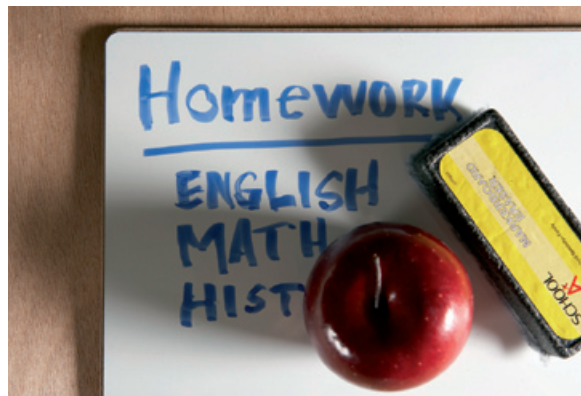 HomeWORK
ENGLISH
MATH
HIST
SCHOOL
A+